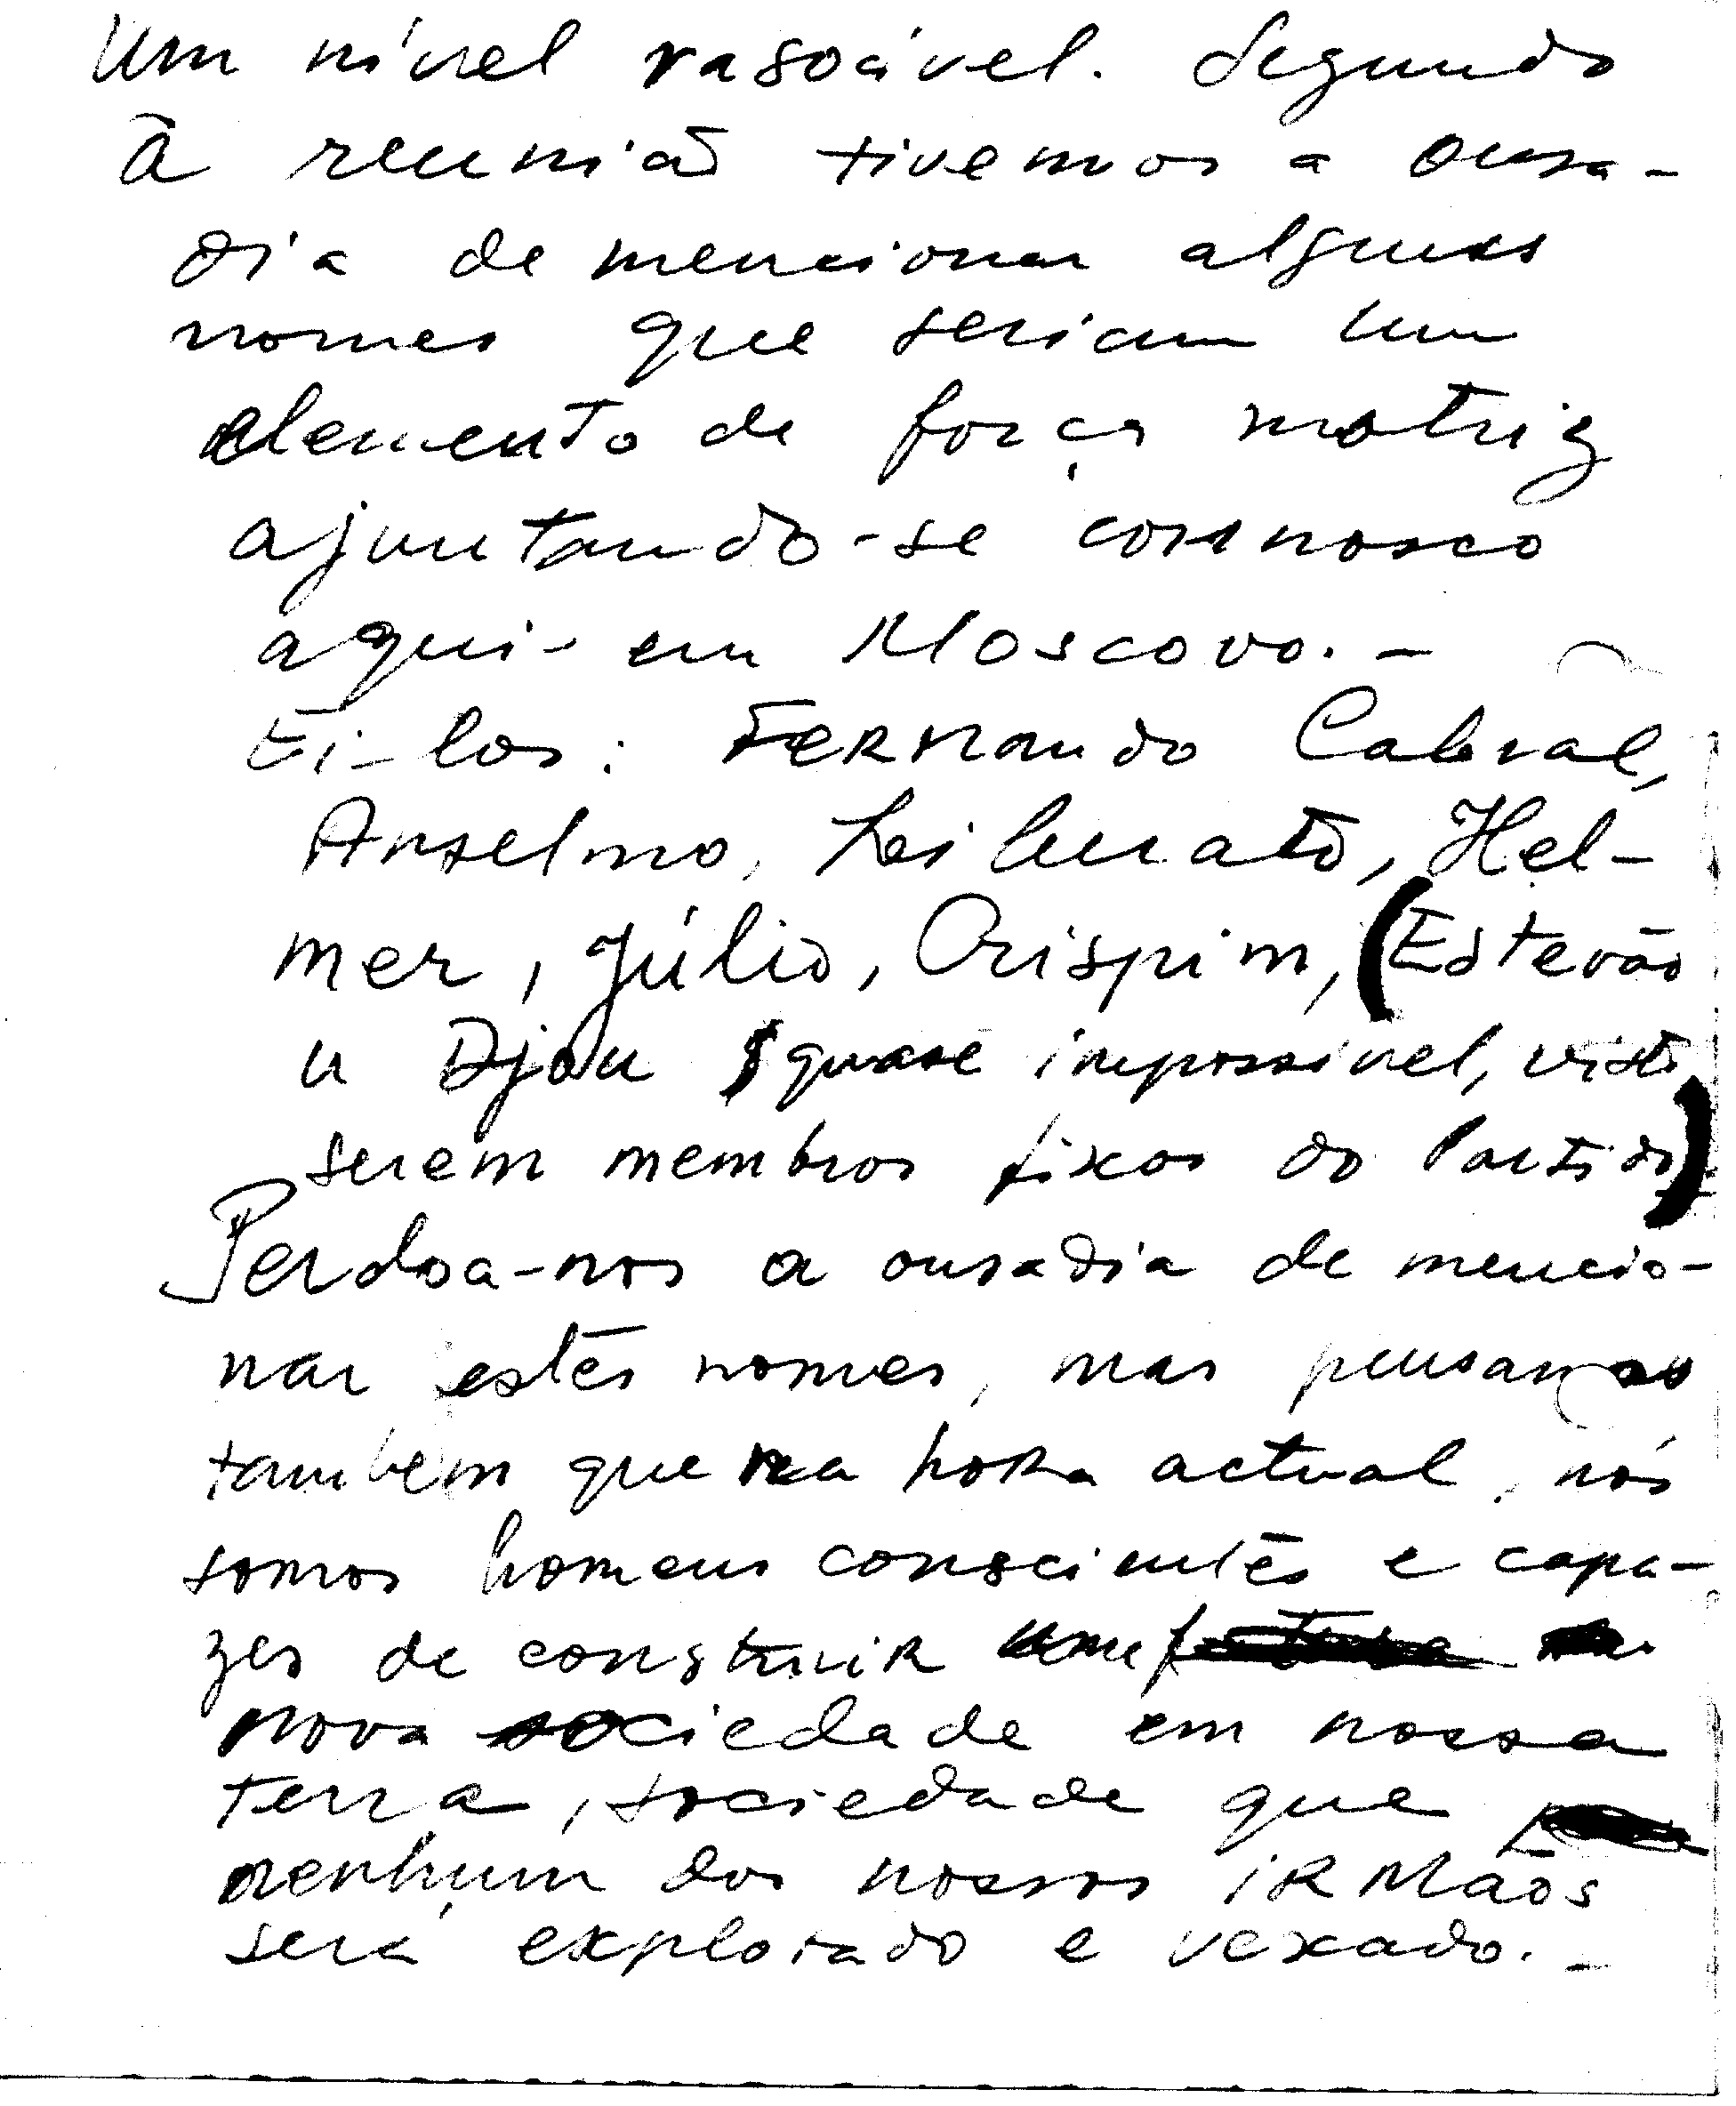 Um nível rasoável. Segundo
à reunião tivemos a ousa-
dia de mencionar alguns
nomes que seriam um
elemento de força motriz
ajuntando-se connosco
aqui- em Moscovo. -
Ei-los: Fernando Cabral,
Anselmo, Leiberato, Hel-
mer, Júlio, Crispim, (Estevão
u Djau quase impossível, visto
serem membros fixos do Partido)
Perdoa-nos a ousadia de mencio-
nar estes nomes, mas pensamos
tambem que na hora actual, nós
somos homens conscientes e capa-
zes de construir uma
nova sociedade em nossa
terra, sociedade que
nenhum dos nossos irmãos
será explorado e vexado. -